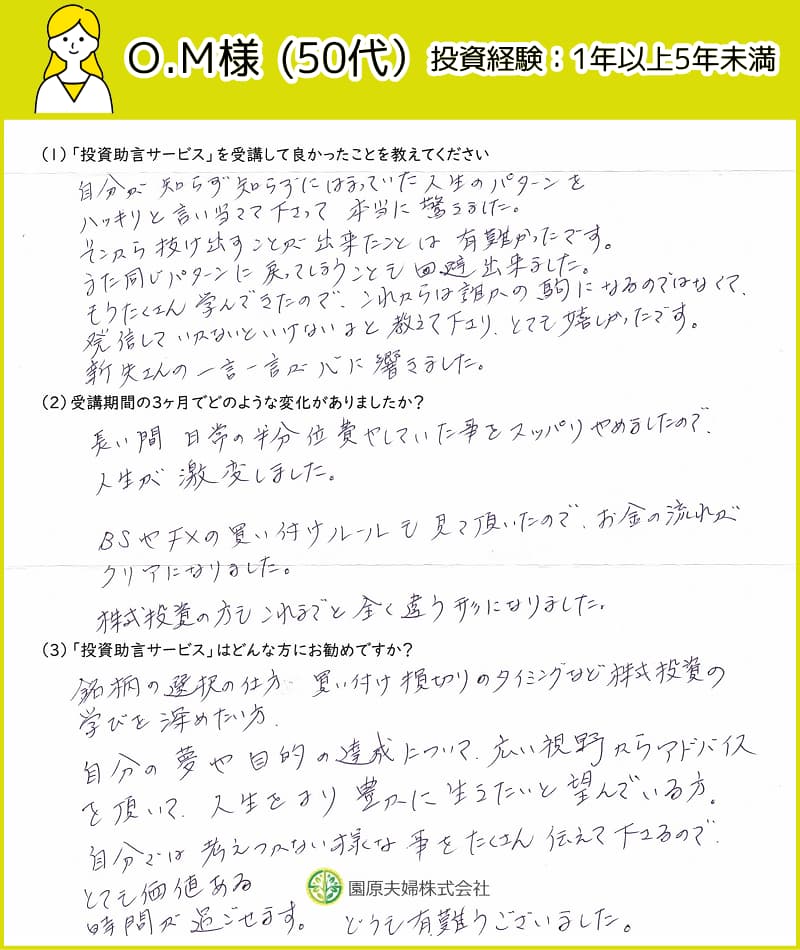 O.M様 (50代) 投資経験：1年以上5年未満
(1)「投資助言サービス」を受講して良かったことを教えてください
自分が 知らず知らずにはまっていた 人生のパターンを
ハッキリと言い当てて下さって 本当に 驚きました。
そこから 抜け出すことが 出来たことは 有難かったです。
また同じパターンに 戻ってしまうことも 回避 出来ました。
もうたくさん 学んできたので、これからは 誰かの 駒に なるのではなくて、
発信して いかないといけないよと 教えて下さり、とても 嬉しかったです。
新夫さんの 一言一言が 心に 響きました。
(2) 受講期間の3ヶ月でどのような変化がありましたか？
長い間 日常の半分位費やしていた事を スッパリ やめましたので、
人生が 激変しました。
BSやFXの買い付けルールも 見て頂いたので、お金の流れが
クリアになりました。
株式投資の方も これまでと 全く違う形になりました。
(3)「投資助言サービス」はどんな方にお勧めですか？
銘柄の選択の仕方、買い付け 損切りのタイミングなど 株式投資の
学びを 深めたい方、
自分の 夢や目的の 達成について、広い視野からアドバイス
を頂いて、人生をより 豊かに 生きたいと 望んでいる方。
自分では 考えつかない様な 事を たくさん 伝えて下さるので、
とても価値ある
園原夫婦株式会社
時間が 過ごせます。 どうも有難うございました。